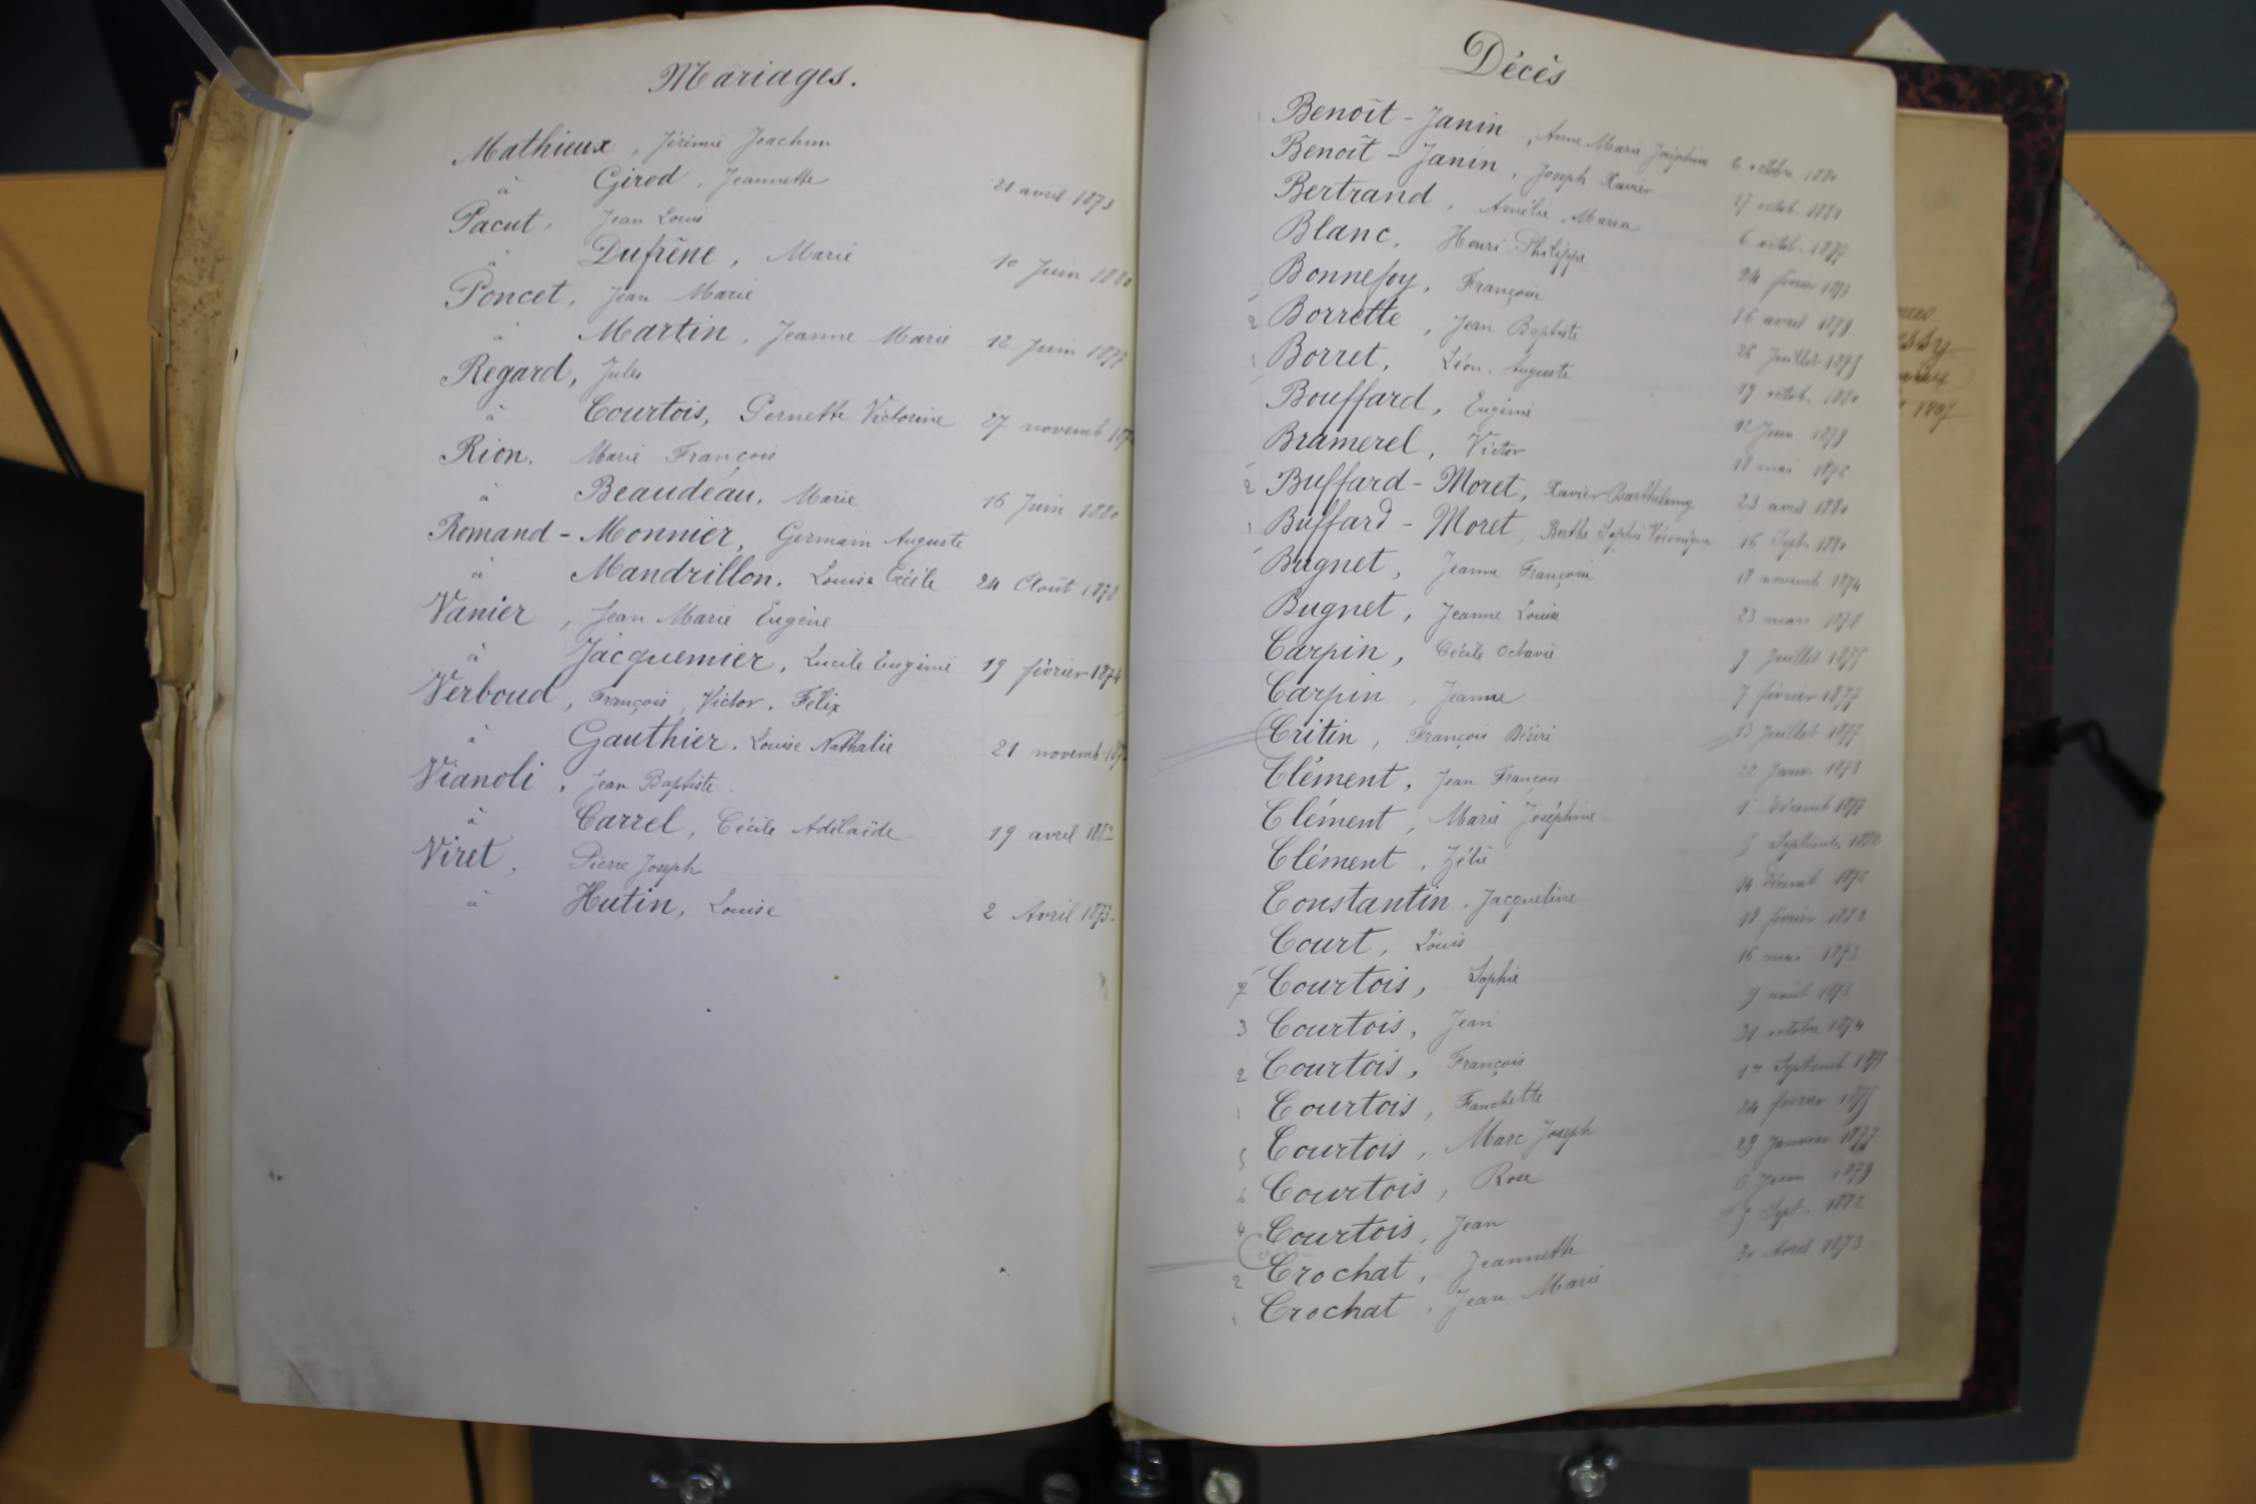 Mariages.
Mathieux, Jérémie Joachim
à Girod, Jeannette 21 avril 1873
Pacut, Jean Louis
à Dufrêne, Marie 10 Juin 1880
Poncet, Jean Marie
à Martin, Jeanne Marie 12 Juin 1877
Regard, Jules
à Courtois, Pernette Victorine 27 novemb
Rion, Marie François
à Beaudéau, Marie 16 Juin 1880
Romand-Monnier, Germain Auguste
à Mandrillon, Louise Cécile 24 Août 1878
Vanier, Jean Marie Eugène
à Jacquemier, Lucile Eugénie 19 février 1874
Verboud, François, Victor, Félix
à Gauthier, Louise Nathalie 21 novemb
Vianoli, Jean Baptiste
à Carrel, Cécile Adélaïde 19 avril
Viret, Pierre Joseph
à Hutin, Louise 2 Avril 1873.
Décès
Benoît-Janin, Anne Marie Joséphine 6 octobre 1880
Benoît-Janin, Joseph Xavier 17 octob. 1880
Bertrand, Amélie, Maria 6 octob. 1877
Blanc, Henri Philippe 24 février
Bonnefoy, François 16 avril 1879
2 Borrette, Jean Baptiste 26 Juillet
1 Borret, Léon, Auguste 19 octob. 1880
Bouffard, Eugénie 12 Juin 1879
Bramerel, Victor 18 mai
2 Buffard-Moret, Xavier Barthélemy 23 avril 1880
1 Buffard-Moret, Berthe Sophie Véronique 16 Sept. 1880
Bugnet, Jeanne Françoise 18 novemb 1874
Bugnet, Jeanne Louise 23 mars 1878
Carpin, Cécile Octavie 9 Juillet 1875
Carpin, Jeanne 7 février 1877
Critin, François Désiré 13 Juillet
Clément, Jean François 22 Janv. 1873
Clément, Marie Joséphine décemb 1877
Clément, Zélie Septemb.
Constantin, Jacqueline 14 décemb
Court, Louis 18 février
Courtois, Sophie 16 mai 1873
3 Courtois, Jean 9 août
2 Courtois, François 31 octobre 1874
1 Courtois, Fanchette 1er Septemb
5 Courtois, Marc Joseph 24 février 1875
Courtois, Rose 29 Janvier 1877
4 Courtois, Jean 6 1879
2 Crochat, Jeannette Sept. 1872
1 Crochat, Jean Marie 30 Avril 1873